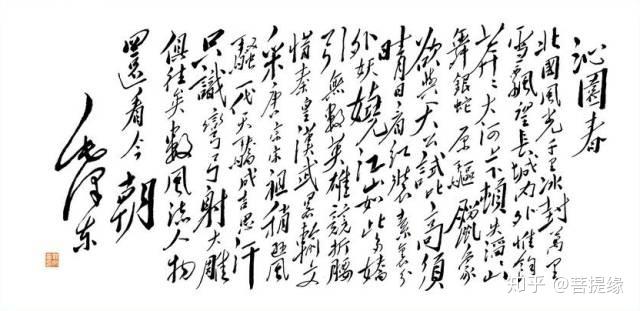 沁園春
北國風光千里冰封萬里
雪飄望長城内外惟餘
莽〻大河上下頓失滔〻山
舞銀蛇原驅臘象
欲與天公試比高須
晴日看紅裝素裹分
外妖嬈江山如此多嬌
引無數英雄競折腰
惜秦皇漢武略輸文
采唐宗宋祖稍遜風
騷一代天驕成吉思汗
只識彎弓射大雕
俱往矣數風流人物
還看今朝
毛澤东
知乎 @菩提缘